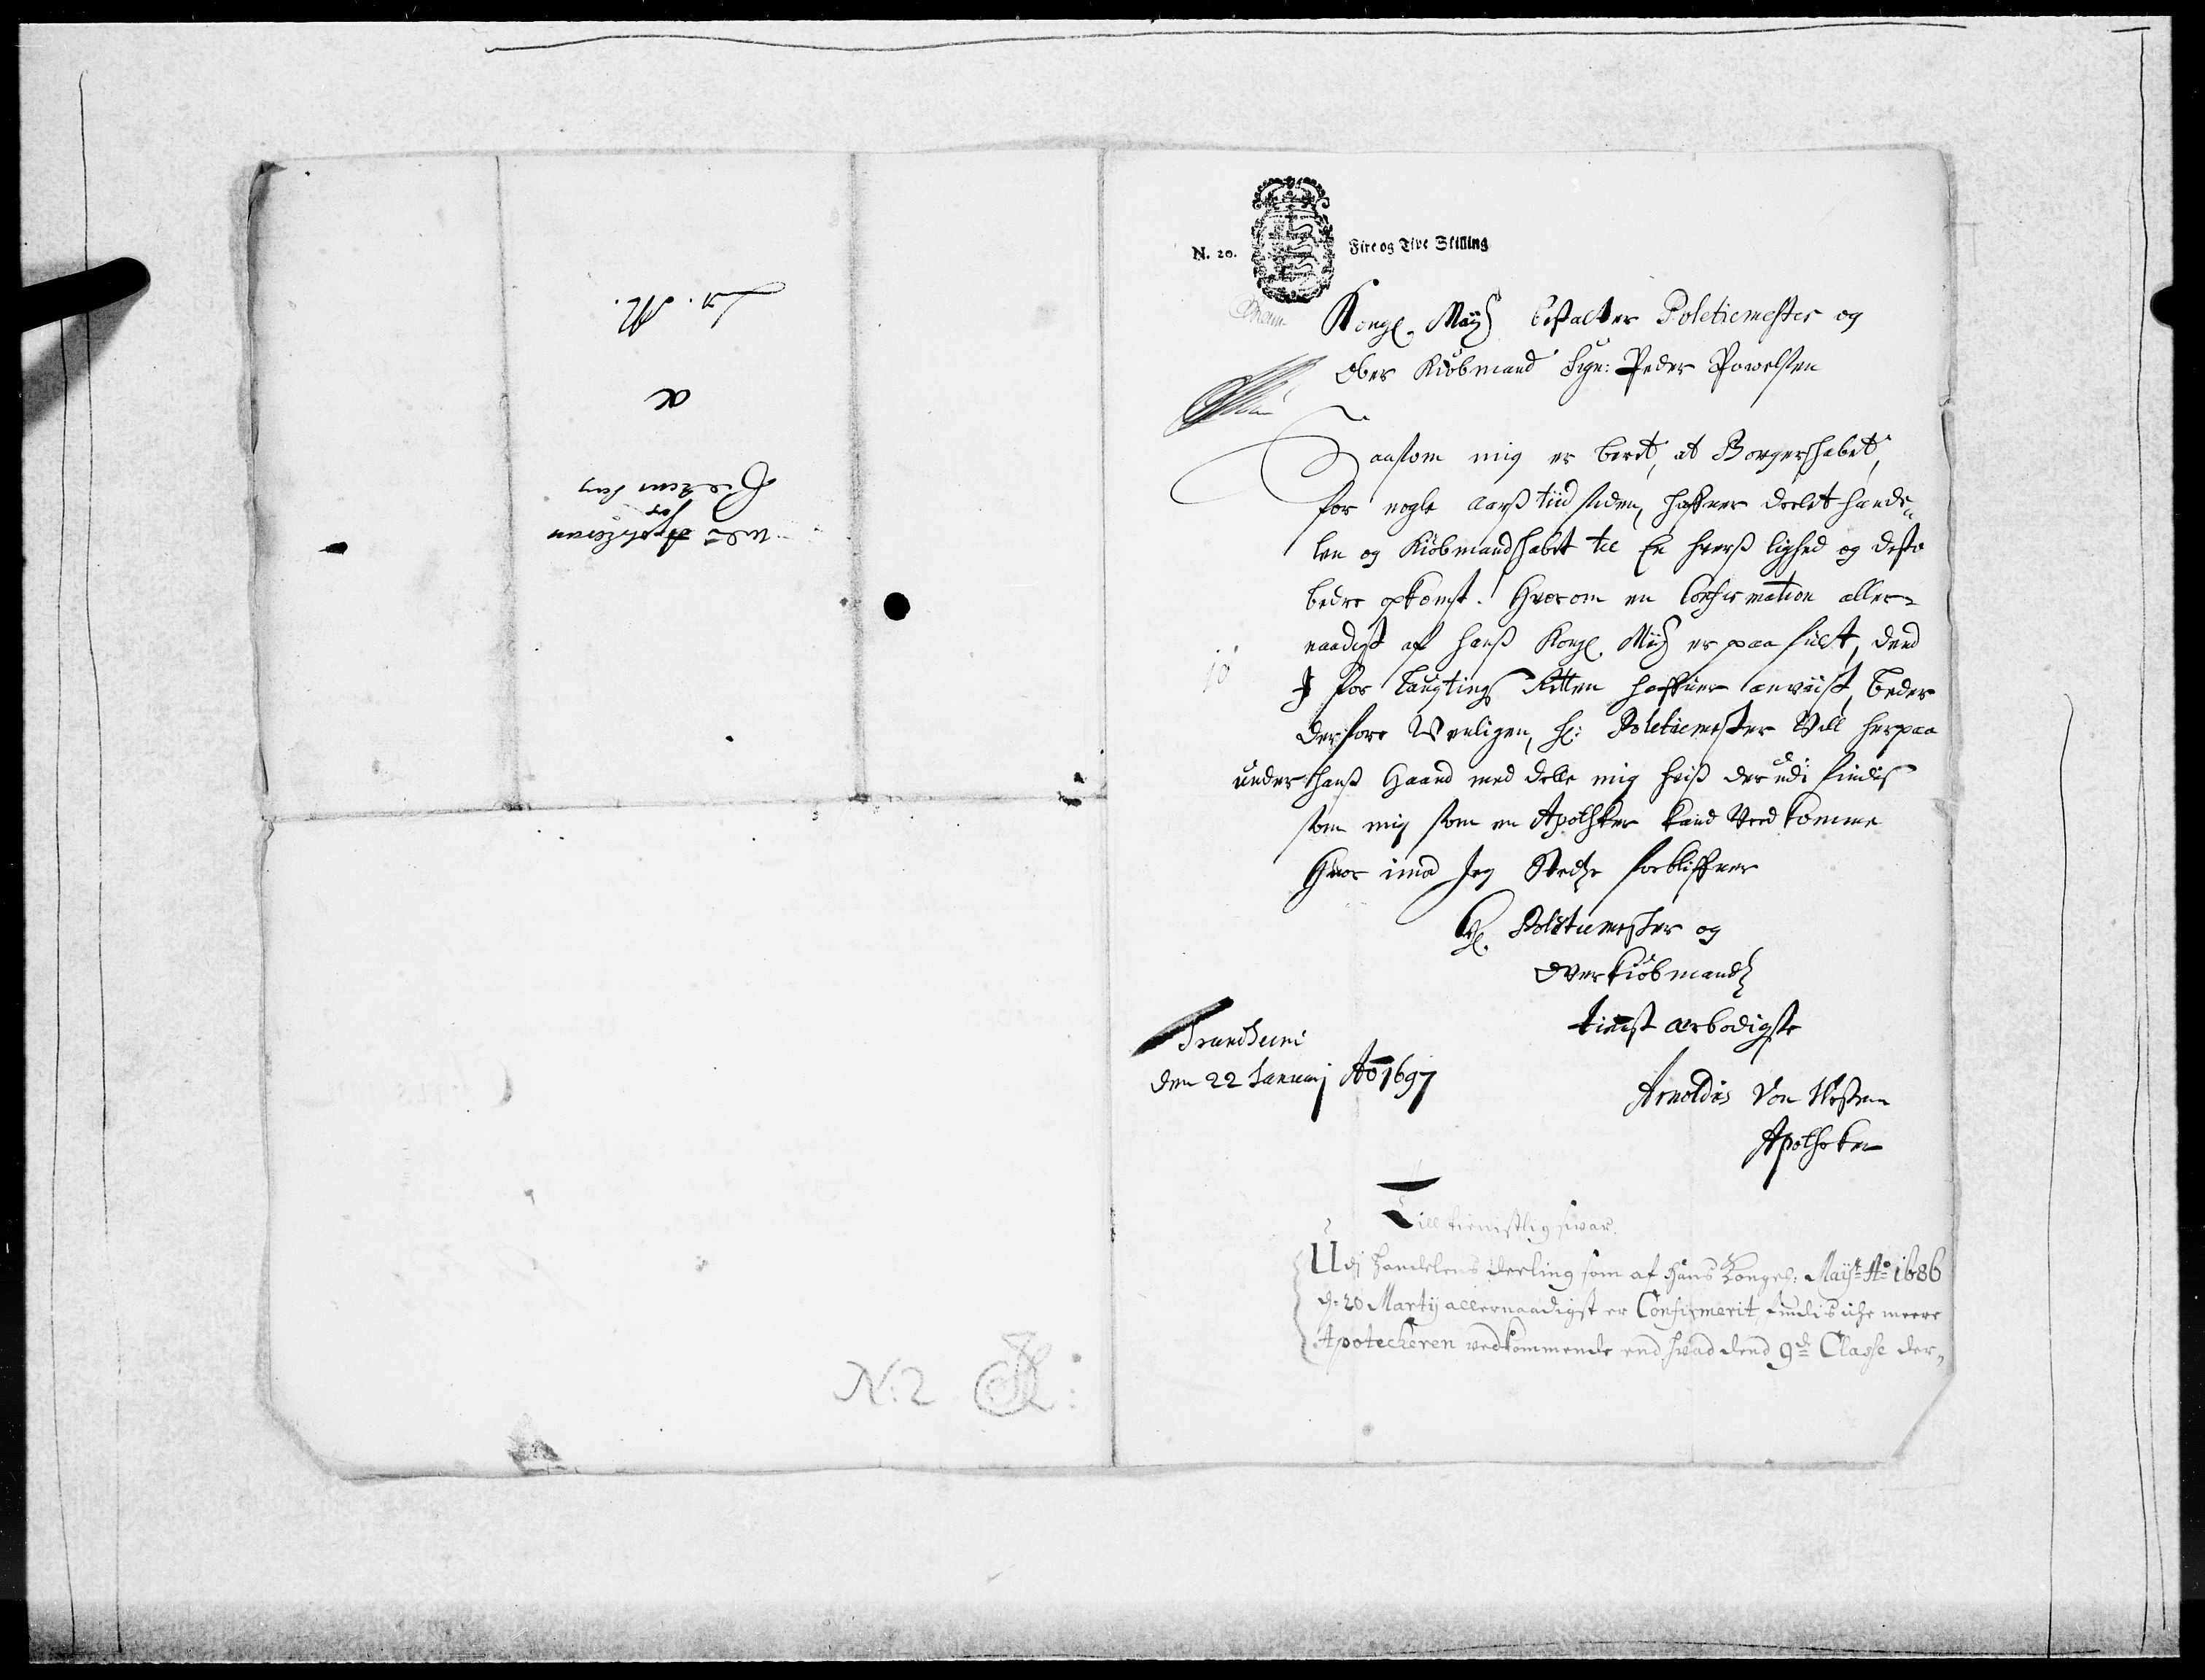 N. 20.
Fire og Tive Skilling
Kongl. May: bestalter Poletiemester og
Ober Kiøbmand Sigr: Peder Powelsen
Saasom mig er berét, at Borgerskabet,
for nogle aarß tiid siden, haffuer deelet hande-
len og Kiøbmandskabet til En hverß lighed og desto
bedre opkomst. Hvorom en Confirmation aller-
naadigst af hanß Kongl. May: er paa fuldt, dend
J for Laugtings Retten haffuer anviist, beder
derfore Venligen, H: Poletiemester Vill herpaa
under hanß Haand med dele mig hviß der udi findis
som mig som en Apotheker kand Ved komme
Hvor imod Jeg Stedse forbliffver
H. Poletiemester og
Overkiøbmandz
tienist ærbødigste
Trundheim
den 22 Januarj Ao 1697
Arnoldus Von Westen
Apotheker
Till tienistlig svar.
Udj Handelens deeling som af Hans Kongel: Mayst: Ao 1686
d: 20 Martij allernaadigst er Confirmerit, findis iche meere
Apotecheren vedkommende end hvad dend 9de Classe der-
N: 2
La. A.